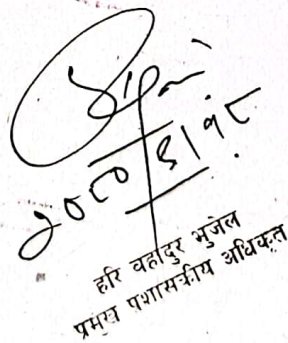 २०८०/६/१८
हरि वहादुर भुजेल
प्रमुख प्रशासकीय अधिकृत